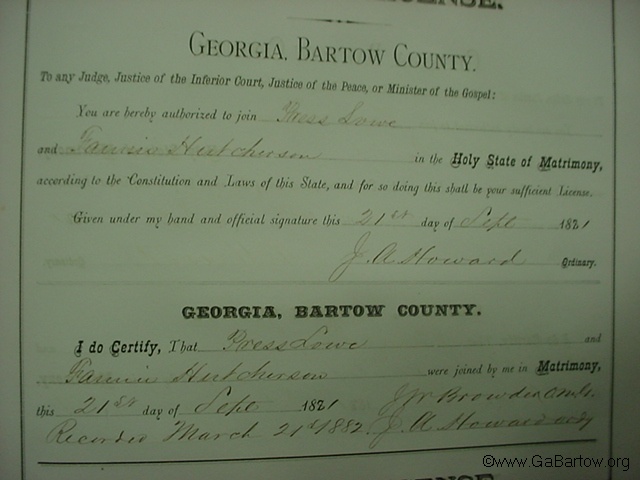 GEORGIA, BARTOW COUNTY.
To any Judge, Justice of the Inferior Court, Justice of the Peace, or Minister of the Gospel:
You are hereby authorized to join Press Lowe
and Fannie Hutcherson in the Holy State of Matrimony,
according to the Constitution and Laws of this State, and for so doing this shall be your sufficient License.
Given under my hand and official signature this 21st day of Sept 1881
J. A Howard Ordinary.
GEORGIA, BARTOW COUNTY.
I do Certify, That Press Lowe and
Fannie Hutcherson were joined by me in Matrimony,
this 21st day of Sept 1881 Browden
Recorded March 21st 1882. J. A Howard ordy
©www.GaBartow.org